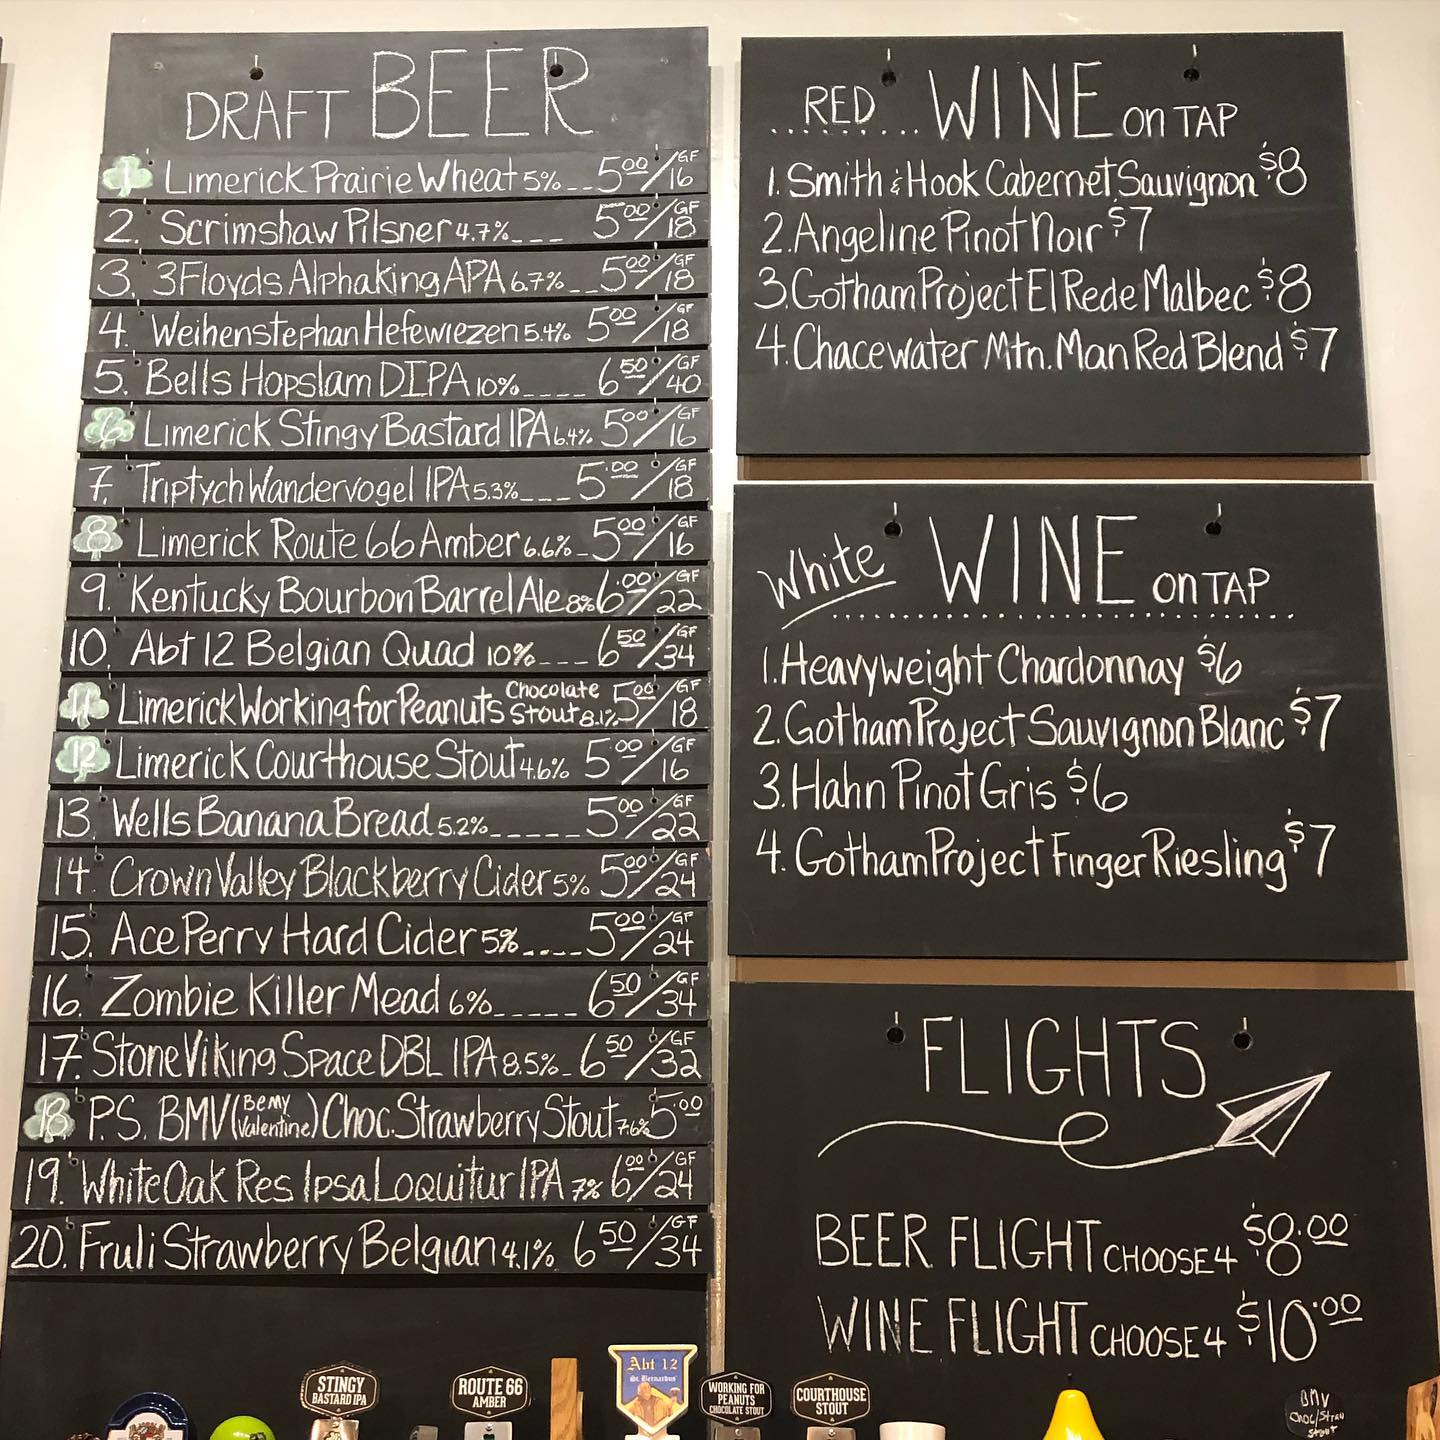 DRAFT BEER
1. Limerick Prairie Wheat 5% __ 5.00/GF 16
2. Scrimshaw Pilsner 4.7% ___ 5.00/GF 18
3. 3Floyds Alphaking APA 6.7% __ 5.00/GF 18
4. Weihenstephan Hefewiezen 5.4% 5.00/GF 18
5. Bells Hopslam DIPA 10% ____ 6.50/GF 40
6 Limerick Stingy Bastard IPA 6.4% 5.00/GF 16
7. Triptych Wandervogel IPA 5.3% ___ 5.00/GF 18
8 Limerick Route 66 Amber 6.6% _ 5.00/GF 16
9. Kentucky Bourbon Barrel Ale 8% 6.00/GF 22
10. Abt 12 Belgian Quad 10% ___ 6.50/GF 34
11 Limerick Working for Peanuts Chocolate Stout 8.1% 5.00/GF 18
12 Limerick Courthouse Stout 4.6% 5.00/GF 16
13. Wells Banana Bread 5.2% _____ 5.00/GF 22
14. Crown Valley Blackberry Cider 5% 5.00/GF 24
15. Ace Perry Hard Cider 5% ____ 5.00/GF 24
16. Zombie Killer Mead 6% _____ 6.50/GF 34
17. Stone Viking Space DBL IPA 8.5% _ 6.50/GF 32
18 P.S. BMV (Be My Valentine) Choc. Strawberry Stout 7.6% 5.00
19. White Oak Res Ipsa Loquitur IPA 7% 6.00/GF 24
20. Fruli Strawberry Belgian 4.1% 6.50/GF 34
RED WINE on TAP
1. Smith & Hook Cabernet Sauvignon $8
2. Angeline Pinot Noir $7
3. Gotham Project El Rede Malbec $8
4. Chacewater Mtn. Man Red Blend $7
White WINE on TAP
1. Heavyweight Chardonnay $6
2. Gotham Project Sauvignon Blanc $7
3. Hahn Pinot Gris $6
4. Gotham Project Finger Riesling $7
FLIGHTS
BEER FLIGHT CHOOSE 4 $8.00
WINE FLIGHT CHOOSE 4 $10.00
STINGY
BASTARD IPA
ROUTE 66
AMBER
Abt 12
St. Bernardus
WORKING FOR
PEANUTS
CHOCOLATE STOUT
COURTHOUSE
STOUT
BMV
Choc/Straw
Stout